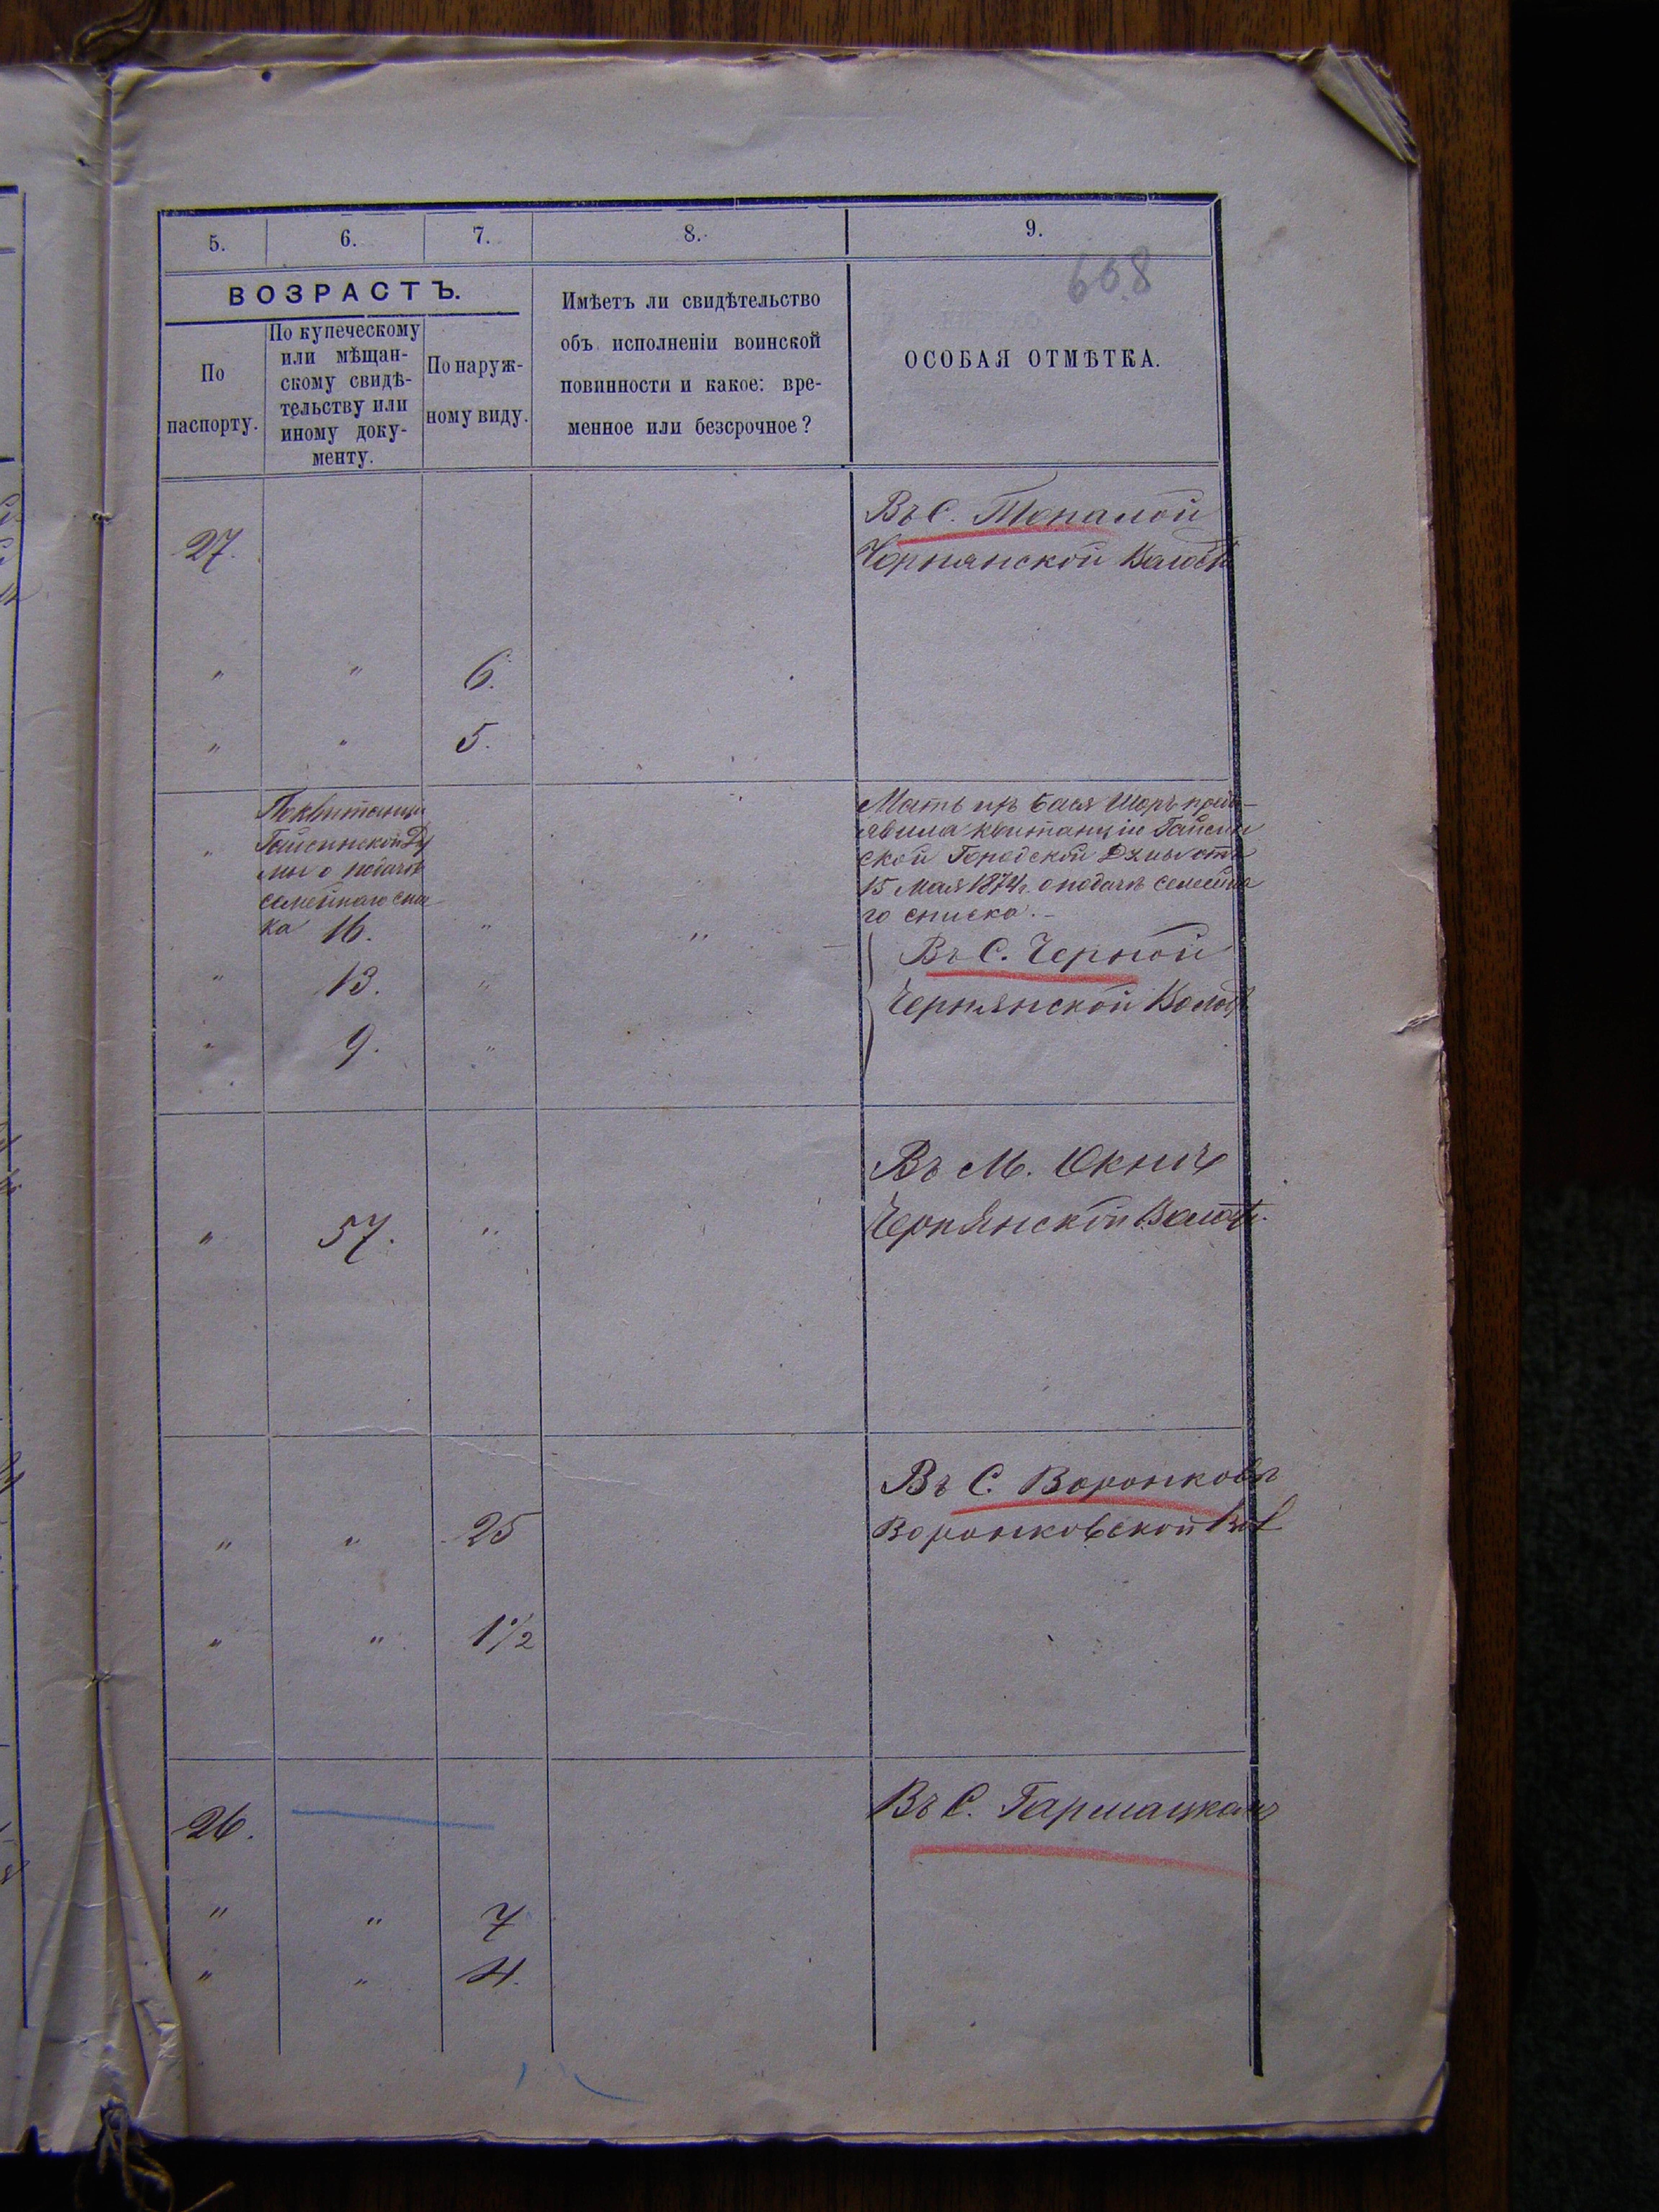 5. 6. 7. 8. 9.
608
ВОЗРАСТЪ.
По
паспорту.
По купеческому
или мѣщан-
скому свидѣ-
тельству или
иному доку-
менту.
По наруж-
ному виду.
Имѣетъ ли свидѣтельство
объ исполненіи воинской
повинности и какое: вре-
менное или безсрочное?
ОСОБАЯ ОТМѢТКА.
27.
Въ С. Топалой
Чорнянской Волости
" " 6.
" " 5.
"
По квитанции
Гайсинской Ду
мы о подачѣ
семейнаго спи-
ка 16. " "
Мать ихъ Бася Шоръ предъ-
явила квитанцію Гайсин
ской Городской Думы отъ
15 Мая 1874 г. о подачѣ семейна
го списка. –
" 13. "
" 9. "
Въ С. Черной
Чернянской Волост
" 57. "
Въ М. Окнич
Чернянской Волост.
" " 25
Въ С. Воронковѣ
Воронковской Вол
" " 1 1/2
26.
Въ С. Гармацкахъ
" " 7
" " 4.